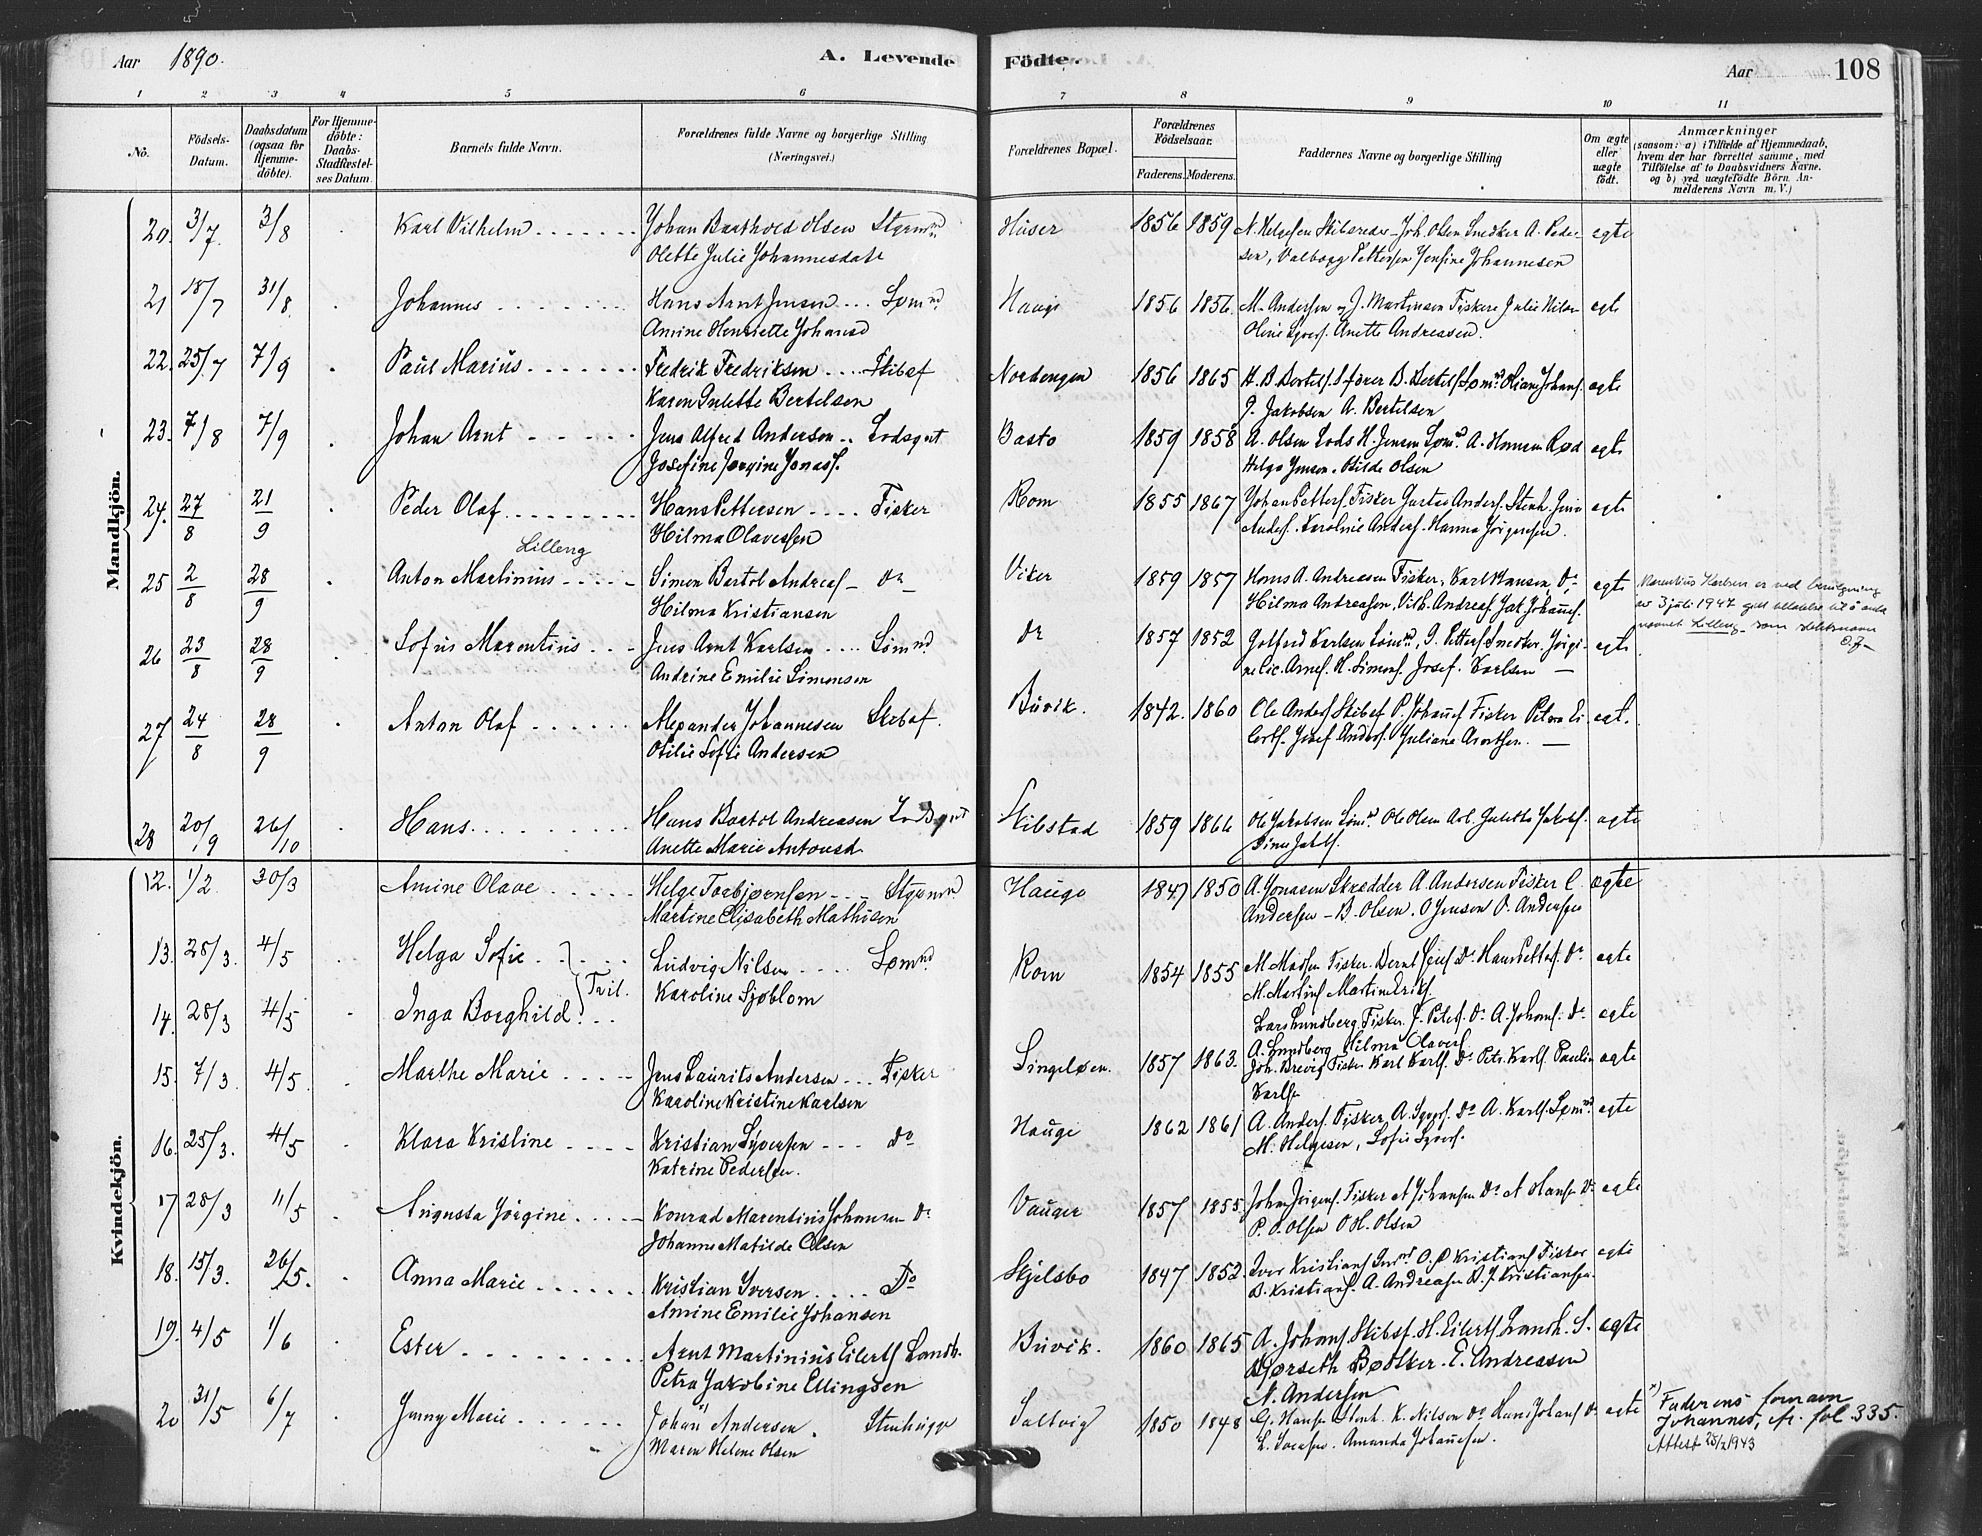 Aar 1890. A. Levende Födte. Aar 108
1 2 3 4 5 6 7 8 9 10 11
No. Födsels-Datum. Daabsdatum (ogsaa for Hjemme-döbte). For Hjemme-döbte: Daabs-Stadfæstel-ses Datum. Barnets fulde Navn. Forældrenes fulde Navne og borgerlige Stilling (Næringsvei.) Forældrenes Bopæl. Forældrenes Födselsaar. Faderens. Moderens. Faddernes Navne og borgerlige Stilling Om ægte eller uægte födt. Anmærkninger (saasom: a) i Tilfælde af Hjemmedaab, hvem der har forrettet samme, med Tilföielse af to Daabsvidners Navne. og b) ved uægtefödte Börn, An-melderens Navn m. V.)
Mandkjön.
20. 3/7 3/8 Karl Vilhelm Johan Barthold Olsen Styrmd. Huser 1856 1859 N. Helgesen Skibsreder Joh. Olsen Snedker A. Peder- egte
Olette Julie Johannesdatt sen, Valborg Pettersen Jensine Johannesen
21 18/7 31/8. Johannes Hans Arnt Jensen Sømd. Hauge 1856 1856. M. Andersen og J. Martinsen Fiskere Julie egte
Amine Henriette Johansd Oline Anette Andreasen.
22. 25/7 7/9 Paul Marius Fredrik Fredriksen Skibsf Nordengen 1856 1865 H. B. Bertels. B. Bertels Sømd. egte
Karen Julette Bertelsen J. Jakobsen A. Bertelsen
23. 7/8 7/9 Johan Arnt Jens Alfred Anderson Lodsgut Basto 1859 1858 A. Olsen Lods H. Jensen Sømd. A. Hansen egte
Josefine Jorgine Jonass. Helga Jensen. Olsen
24. 27/8 21/9 Peder Olaf Hans Pettersen Fisker Rom 1855 1867 Johan Petters. Fisker Gustav Anders. Stenh. egte
Hilma Olavessen Anders. Karoline Anders. Hanna Jørgensen.
Lilleng
25 2/8 28/9 Anton Martinius Simon Bertol Andreas Do Viker 1859 1857 Hans A. Andreasen Fisker, Karl Hansen, Do egte Marentius Karlsen er ved bevilgning
Hilma Kristiansen Hilma Andreasen, Vilh. Andreas. Jak. Johans. av 3 juli 1947 gitt tillatelse til å anta
navnet Lilleng som slektsnavn
26 23/8 28/9 Sofus Marentius Jens Arnt Karlsen Sømnd Do 1857 1852 Gotfred Karlsen Sømnd, G. Petters Snedker. egte
Andrine Emilie Simensen H. Simens. Josef. Karlsen
27 24/8 28/9 Anton Olaf Alexander Johannesen Skibsf. Buvik. 1842. 1860 Ole Anders Skibsf P. Johans Fisker egt.
Otilie Sofie Andersen Josef Anders. Juliane
28 20/9 26/10 Hans Hans Bartol Andreasen Lodsgut Skibstad 1859 1866 Ole Jakobsen Sømd. Ole Olsen Julette Jakobs. egte
Anette Marie Antonsd
Kvindekjön.
12. 1/2. 30/3 Amine Olave Helge Torbjørnsen Styrmd. Hauge 1847 1850 A. Jonasen Skrædder A. Andersen Fisker C. Ægte
Martine Elisabeth Mathisen Andersen B. Olsen. O Jensen O. Andersen
13. 28/3. 4/5 Helga Sofie Tvil. Ludvig Nilsen Sømnd. Rom 1854 1855 M. Madsen Fisker. Bernt Do Hans Petters. Do egte
Karoline Sjøblom M. Martins Martin Eriks.
14. 28/3 4/5 Inga Borghild. Lars Lundberg Fisker. J. Peters. Do A. Johans. Do egte
A. Lundberg Hilma Olaves
15. 7/3. 4/5 Marthe Marie Jens Laurits Andersen Fisker Singeløen. 1857 1863. Joh. Brevig Fisker Karl Karls. Do Petr. Karls. Paulin egte
Karoline Kristine Karlsen Karls
16. 25/3. 4/5 Klara Kristine Kristian Syversen Do Hauge 1862 1861 A. Anders. Fisker A. Do A. Karls. Sømd. egte
Katrine Pedersen. M. Helgesen, Sofie
17 28/3 11/5 Augusta Jörgine Konrad Marentinius Johansen Do Vauger 1857 1855. Johan Jörgens. Fisker A Johansen Do A Hansen Do egte
Johanne Matilde Olsen P. O. Olsen O H. Olsen
18. 15/3. 26/5. Anna Marie Kristian Iversen Do Skjelsbo 1847 1852. Iver Kristians O. P Kristians Fisker egte
Amine Emilie Johansen B. Kristians. A. Andreasen B. J. Kristiansen
19. 4/5 1/6 Ester Arnt Martinius Eilerts Landh. Buvik. 1860 1865 A. Johans Skibsf. H. Eilerts Landh. S. egte
Petra Jakobine Ellingsen Bødtker. E. Andreassen
N. Andersen
20 31/5 6/7 Jenny Marie Johan Andersen Stenhugge Saltvig 1850 1848 G. Hansen Stenh. K. Nilsen Do Hans Johans Do egte x) Faderens fornavn
Maren Helene Olsen L. Amanda Johansen. Johannes, fr. fol. 335.
Attest 25/2 1943